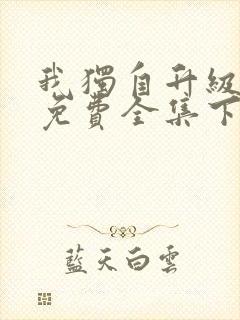 我獨自升級
免費全集下
藍天白雲